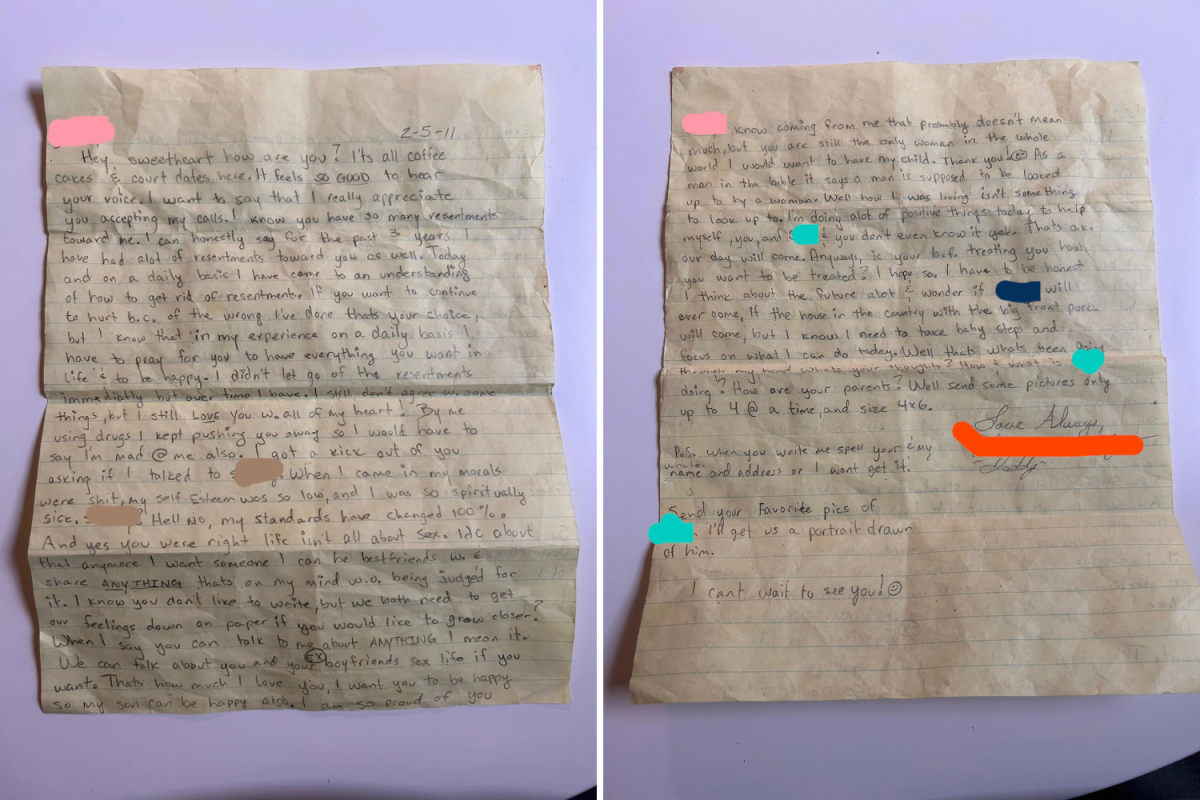 2-5-11
Hey, sweetheart how are you? It's all coffee
cakes & court dates here. It feels SO GOOD to hear
your voice. I want to say that I really appreciate
you accepting my calls. I know you have so many resentments
toward me. I can honestly say for the past 3 years I
have had alot of resentments toward you as well. Today
and on a daily basis I have came to an understanding
of how to get rid of resentments. If you want to continue
to hurt b.c. of the wrong I've done thats your choice,
but I know that in my experience on a daily basis I
have to pray for you to have everything you want in
life & to be happy. I didn't let go of the resentments
immediatly but over time I have. I still don't agree w. some
things, but I still LOVE you w. all of my heart! By me
using drugs I kept pushing you away so I would have to
say I'm mad @ me also. I got a kick out of you
asking if I talked to When I came in my morals
were shit, my self Esteem was so low, and I was so spiritually
sick. ? Hell NO, my standards have changed 100%.
And yes you were right life isn't all about sex. Idc about
that anymore I want someone I can be bestfriends w. &
share ANYTHING thats on my mind w.o. being judged for
it. I know you don't like to write, but we both need to get
our feelings down on paper if you would like to grow closer?
When I say you can talk to me about ANYTHING I mean it.
We can talk about you and your EX boyfriends sex life if you
want. Thats how much I love you, I want you to be happy
so my son can be happy also. I am so proud of you
I know coming from me that probably doesn't mean
much, but you are still the only woman in the whole
world I would want to have my child. Thank you As a
man in the bible it says a man is supposed to be looked
up to by a woman. Well how I was living isn't something
to look up to. I'm doing alot of positive things today to help
myself, you, and & you don't even know it yet. Thats o.k.
our day will come. Anyways, is your b.f. treating you how
you want to be treated? I hope so. I have to be honest
I think about the future alot & wonder if will
ever come, If the house in the country with the big front porch
will come, but I know I need to take baby steps and
focus on what I can do today. Well thats whats been going
through my head whats your thoughts? How & what is
doing? How are your parents? Well send some pictures only
up to 4 @ a time, and size 4x6.
Love Always,
~Daddy~
P.S. When you write me spell your & my
whole
name and address or I wont get it.
Send your Favorite pics of
I'll get us a portrait drawn
of him.
I cant wait to see you! ☺